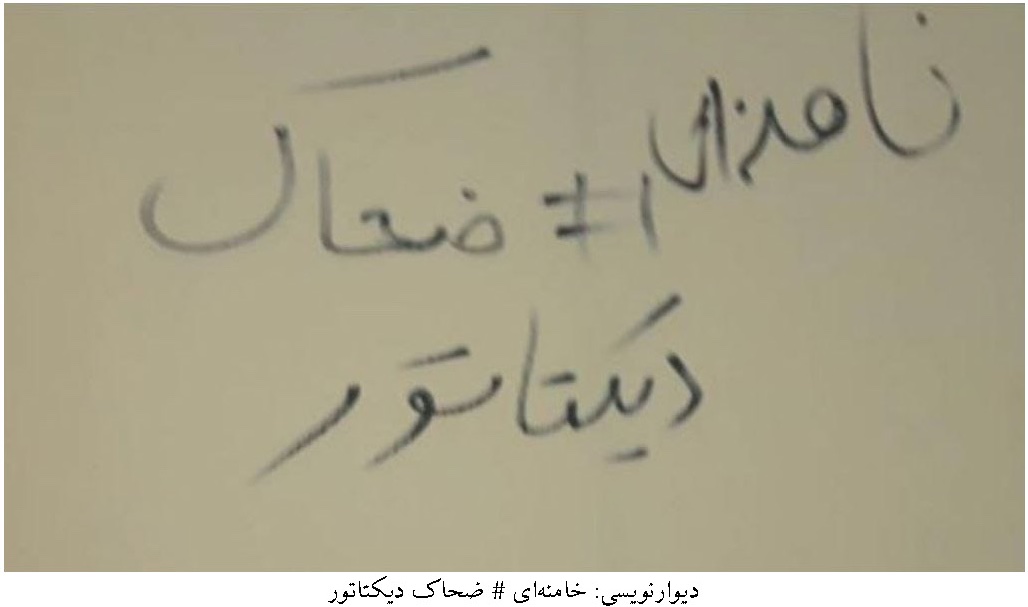 خامنه‌ای # ضحاک
دیکتاتور
دیوارنویسی: خامنه‌ای # ضحاک دیکتاتور